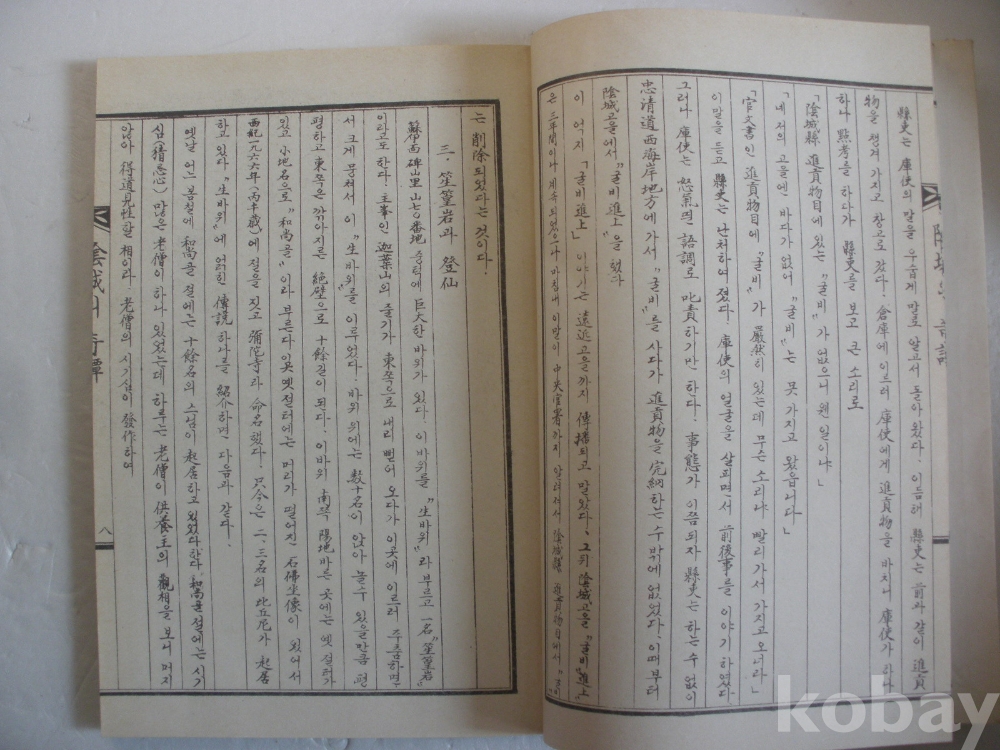 縣吏는 庫使의 말을 우습게 말로 알고서 돌아왔다. 이듬해 縣吏는 前과 같이 進貢
物을 챙겨 가지고 창고로 갔다. 倉庫에 이르러 庫使에게 進貢物을 바치니 庫使가 하나
하나 點考를 하다가 縣吏를 보고 큰 소리로
「陰城縣 進貢物目에 있는 『굴비』가 없으니 웬 일이냐」
「네 저의 고을엔 바다가 없어 『굴비』는 못 가지고 왔읍니다」
「官文書인 進貢物目에 『굴비』가 嚴然히 있는데 무슨 소리냐 빨리 가서 가지고 오너라」
이 말을 듣고 縣吏는 난처하여 졌다 庫使의 얼굴을 살피면서 前後事를 이야기 하였다
그러나 庫使는 怒氣띈 語調로 叱責하기만 한다. 事態가 이쯤되자 縣吏는 하는 수 없이
忠清道 西海岸 地方에 가서 『굴비』를 사다가 進貢物을 完納하는 수 밖에 없었다. 이때부터
陰城고을에서 『굴비進上』을 했다
이 억지 『굴비進上』 이야기는 遠近고을까지 傳播되고 말았다. 그뒤 陰城고을을 『굴비進上』
은 三年間이나 계속 되었으나 마침내 이 말이 中央官署까지 알려져서 陰城縣 進貢物目에서 『굴비』
는 削除되었다는 것이다.
三. 笙篁岩과 登仙
蘇伊面 碑山里 山七〇番地 중턱에 巨大한 바위가 있다. 이 바위를 "生바위"라 부르고 一名 "笙篁岩"
이라고도 한다. 主峯인 迦葉山의 줄기가 東쪽으로 내리 뻗어 오다가 이곳에 이르러 주춤하면
서 크게 뭉쳐서 이 "生바위"를 이루었다. 바위 위에는 數十名이 앉아 놀 수 있을만큼 편
평하고 東쪽은 깎아지른 絶壁으로 十餘길이 되다. 이 바위 南쪽 陽地바른 곳에는 옛 절터가
있고 小地名으로 "和尙골"이라 부른다 이곳 옛 절터에는 머리가 떨어진 石佛坐像이 있어서
西紀一九六六年(丙午歲)에 절을 짓고 彌陀寺라 命名했다. 只今은 二、三名의 比丘尼가 起居
하고 있다. "生바위"에 얽힌 傳說 하나를 紹介하면 다음과 같다.
옛날 어느 봄철에 和尙골 절에는 十餘名의 스님이 起居하고 있었다 한다. 和尙골 절에는 시기
심(猜忌心) 많은 老僧이 하나 있었는데 하루는 老僧이 供養主의 觀相을 보니 머지
않아 得道見性할 相이라. 老僧의 시기심이 發作하여
陰城의 奇譚
八
kobay